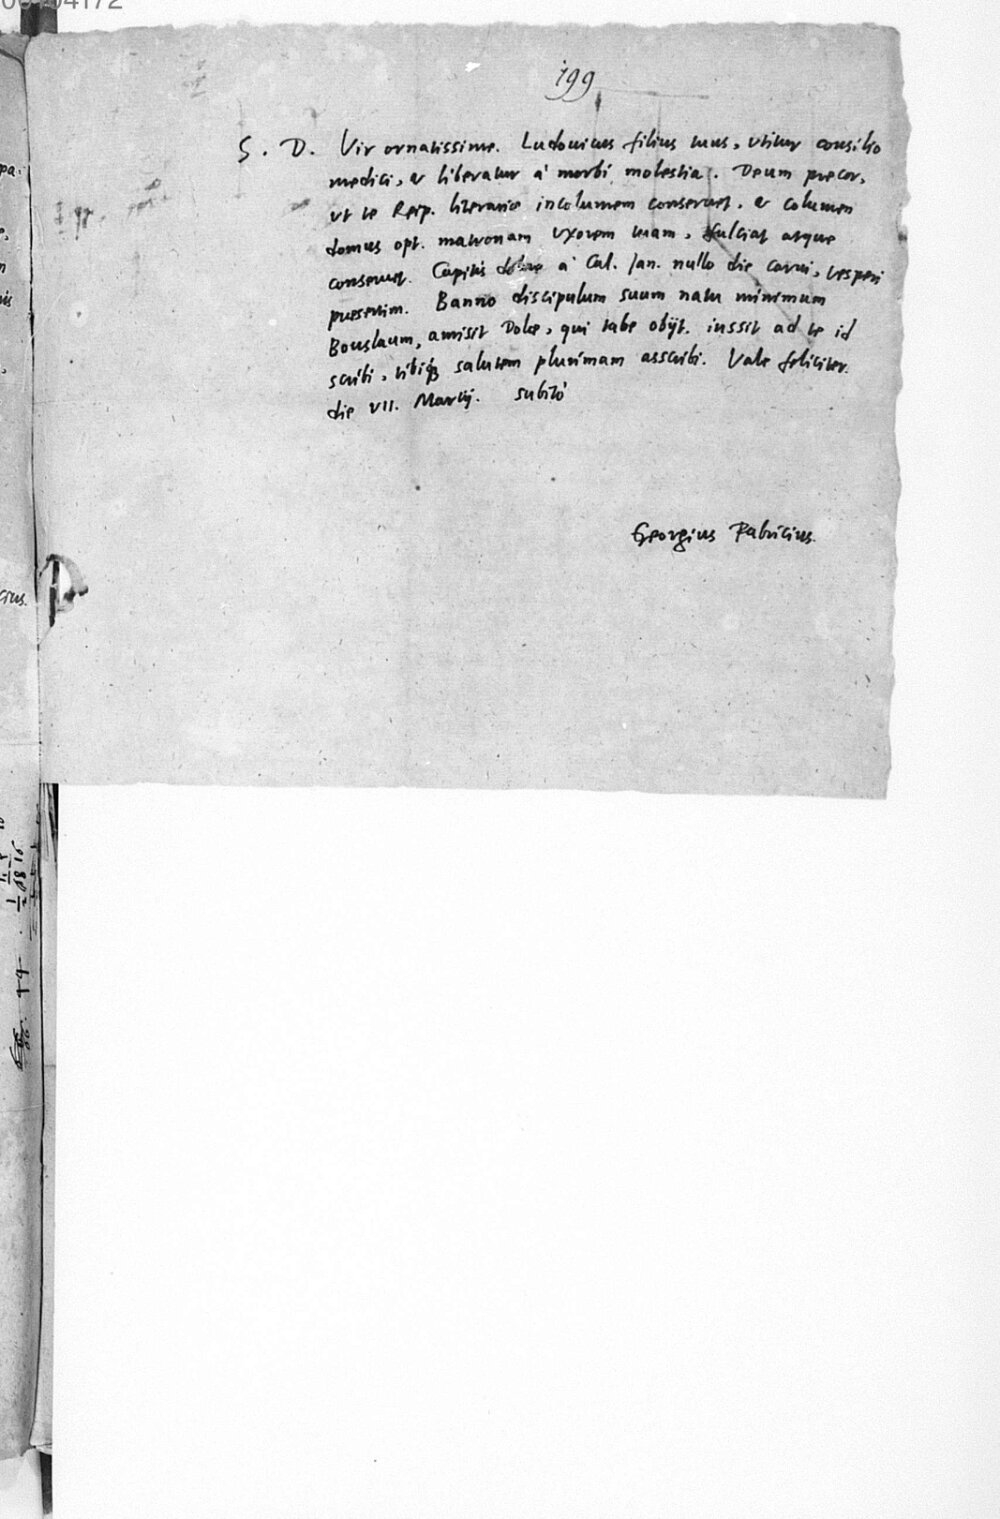 199
S. D. Vir ornatissime. Ludouicus filius tuus, vtitur consilio
medici, et liberatur à morbi molestia. Deum precor,
vt te Reip. literariae incolumem conseruet, et columen
domus opt. matronam vxorem tuam, fulciat atque
conseruet. Capitis dolore à Cal. Jan. nullo die carui, vesperi
praesertim. Banno discipulum suum natu minimum
Bouslaum, amisit Dolae, qui tabe obijt. iussit ad te id
scribi, tibiq; salutem plurimam asscribi. Vale feliciter.
die VII. Martij. subitò
Georgius Fabricius.